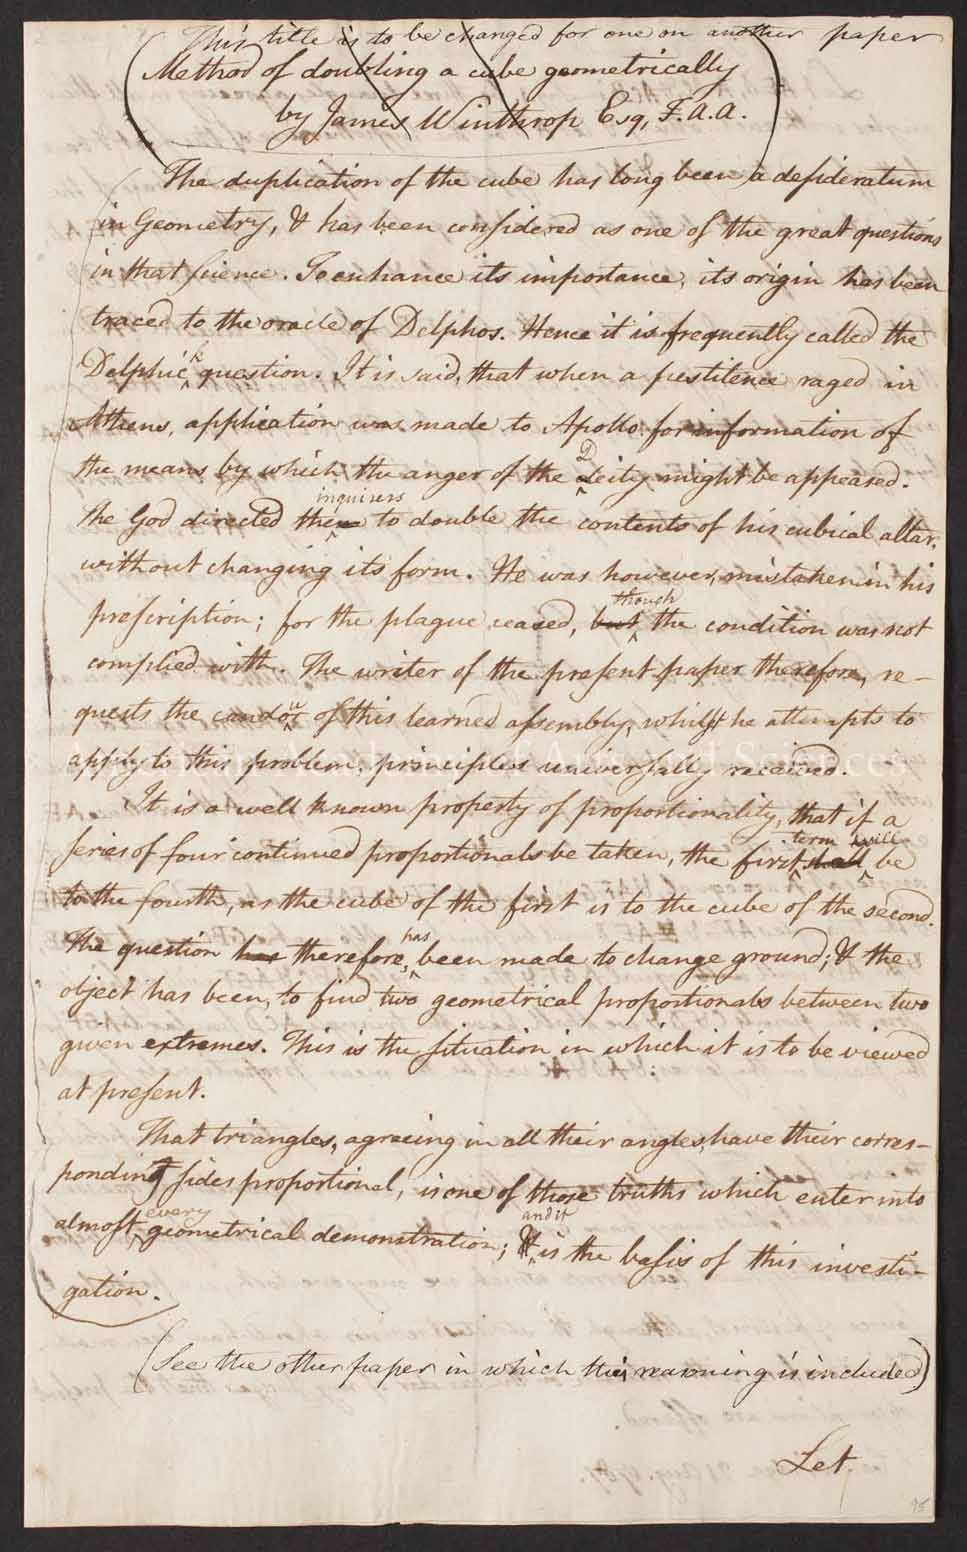 This title is to be changed for one on another paper
Method of doubling a cube geometrically
by James Winthrop Esq, F.A.A.
The duplication of the cube has long been a desideratum
in Geometry, & has been considered as one of the great questions
in that science. To enhance its importance, its origin has been
traced to the oracle of Delphos. Hence it is frequently called the
Delphick question. It is said, that when a pestilence raged in
Athens, application was made to Apollo for information of
the means by which the anger of the Deity might be appeased.
inquirers
The God directed them to double the contents of his cubical altar,
without changing its form. He was however, mistaken in his
though
prescription; for the plague ceased, but the condition was not
complied with. The writer of the present paper therefore, re-
quests the candour of this learned assembly, whilst he attempts to
apply to this problem, principles universally received.
It is a well known property of proportionality, that if a
term will
series of four continued proportionals be taken, the first shall be
to the fourth, as the cube of the first is to the cube of the second.
has
The question has therefore, been made to change ground; & the
object has been, to find two geometrical proportionals between two
given extremes. This is the situation in which it is to be viewed
at present.
That triangles, agreeing in all their angles, have their corres-
ponding sides proportional, is one of those truths which enter into
every and it
almost geometrical demonstration; It is the basis of this investi-
gation.
(See the other paper in which this reasoning is included)
Let
95